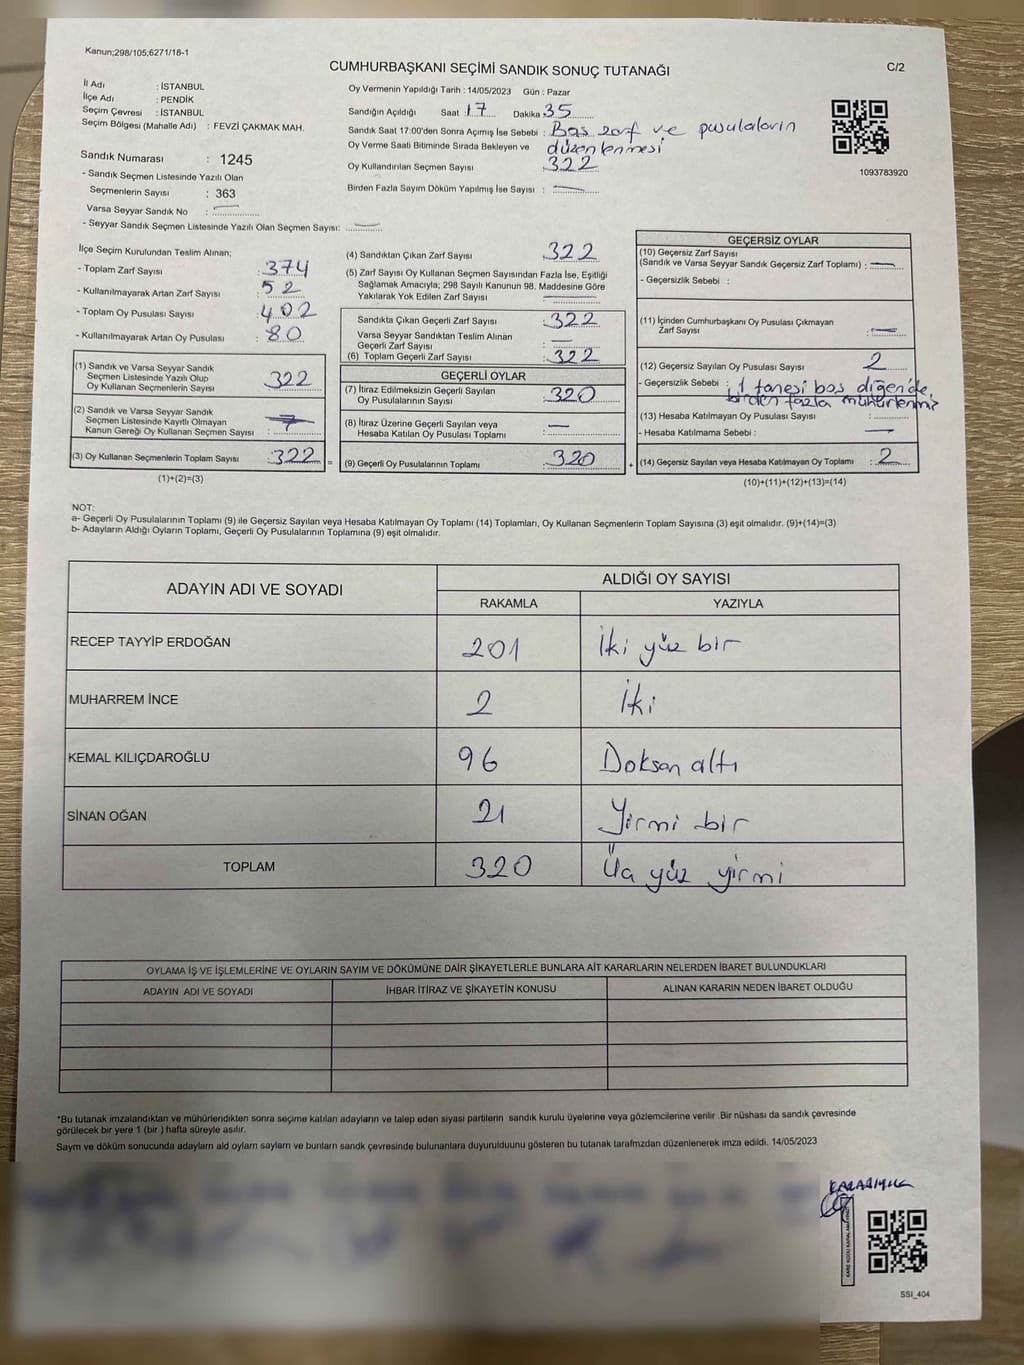 Kanun;298/105;6271/18-1
CUMHURBAŞKANI SEÇİMİ SANDIK SONUÇ TUTANAĞI
C/2
İl Adı : İSTANBUL
İlçe Adı : PENDİK
Seçim Çevresi : İSTANBUL
Seçim Bölgesi (Mahalle Adı) : FEVZİ ÇAKMAK MAH.
Sandık Numarası : 1245
- Sandık Seçmen Listesinde Yazılı Olan
Seçmenlerin Sayısı : 363
Varsa Seyyar Sandık No :
- Seyyar Sandık Seçmen Listesinde Yazılı Olan Seçmen Sayısı:
Oy Vermenin Yapıldığı Tarih : 14/05/2023 Gün : Pazar
Sandığın Açıldığı Saat 17 Dakika 35
Sandık Saat 17:00'den Sonra Açımış İse Sebebi : Boş zarf ve pusulaların
Oy Verme Saati Bitiminde Sırada Bekleyen ve düzenlenmesi
Oy Kullandırılan Seçmen Sayısı 322
Birden Fazla Sayım Döküm Yapılmış İse Sayısı :
1093783920
İlçe Seçim Kurulundan Teslim Alınan;
- Toplam Zarf Sayısı : 374
- Kullanılmayarak Artan Zarf Sayısı : 52
- Toplam Oy Pusulası Sayısı : 402
- Kullanılmayarak Artan Oy Pusulası : 80
(1) Sandık ve Varsa Seyyar Sandık
Seçmen Listesinde Yazılı Olup
Oy Kullanan Seçmenlerin Sayısı : 322
(2) Sandık ve Varsa Seyyar Sandık
Seçmen Listesinde Kayıtlı Olmayan
Kanun Gereği Oy Kullanan Seçmen Sayısı :
(3) Oy Kullanan Seçmenlerin Toplam Sayısı : 322 =
(1)+(2)=(3)
(4) Sandıktan Çıkan Zarf Sayısı : 322
(5) Zarf Sayısı Oy Kullanan Seçmen Sayısından Fazla İse, Eşitliği
Sağlamak Amacıyla; 298 Sayılı Kanunun 98. Maddesine Göre
Yakılarak Yok Edilen Zarf Sayısı :
Sandıkta Çıkan Geçerli Zarf Sayısı : 322
Varsa Seyyar Sandıktan Teslim Alınan
Geçerli Zarf Sayısı :
(6) Toplam Geçerli Zarf Sayısı : 322
GEÇERLİ OYLAR
(7) İtiraz Edilmeksizin Geçerli Sayılan
Oy Pusulalarının Sayısı : 320
(8) İtiraz Üzerine Geçerli Sayılan veya
Hesaba Katılan Oy Pusulası Toplamı :
(9) Geçerli Oy Pusulalarının Toplamı : 320 +
GEÇERSİZ OYLAR
(10) Geçersiz Zarf Sayısı
(Sandık ve Varsa Seyyar Sandık Geçersiz Zarf Toplamı) :
- Geçersizlik Sebebi :
(11) İçinden Cumhurbaşkanı Oy Pusulası Çıkmayan
Zarf Sayısı :
(12) Geçersiz Sayılan Oy Pusulası Sayısı : 2
- Geçersizlik Sebebi : 1 tanesi boş diğeri de,
birden fazla mühürlenmiş
(13) Hesaba Katılmayan Oy Pusulası Sayısı :
- Hesaba Katılmama Sebebi :
(14) Geçersiz Sayılan veya Hesaba Katılmayan Oy Toplamı : 2
(10)+(11)+(12)+(13)=(14)
NOT:
a- Geçerli Oy Pusulalarının Toplamı (9) ile Geçersiz Sayılan veya Hesaba Katılmayan Oy Toplamı (14) Toplamları, Oy Kullanan Seçmenlerin Toplam Sayısına (3) eşit olmalıdır. (9)+(14)=(3)
b- Adayların Aldığı Oyların Toplamı, Geçerli Oy Pusulalarının Toplamına (9) eşit olmalıdır.
ADAYIN ADI VE SOYADI
ALDIĞI OY SAYISI
RAKAMLA YAZIYLA
RECEP TAYYİP ERDOĞAN 201 İki yüz bir
MUHARREM İNCE 2 İki
KEMAL KILIÇDAROĞLU 96 Doksan altı
SİNAN OĞAN 21 Yirmi bir
TOPLAM 320 Üç yüz yirmi
OYLAMA İŞ VE İŞLEMLERİNE VE OYLARIN SAYIM VE DÖKÜMÜNE DAİR ŞİKAYETLERLE BUNLARA AİT KARARLARIN NELERDEN İBARET BULUNDUKLARI
ADAYIN ADI VE SOYADI İHBAR İTİRAZ VE ŞİKAYETİN KONUSU ALINAN KARARIN NEDEN İBARET OLDUĞU
*Bu tutanak imzalandıktan ve mühürlendikten sonra seçime katılan adayların ve talep eden siyasi partilerin sandık kurulu üyelerine veya gözlemcilerine verilir .Bir nüshası da sandık çevresinde
görülecek bir yere 1 (bir ) hafta süreyle asılır.
Saym ve döküm sonucunda adaylarn ald oylarn saylarn ve bunlarn sandk çevresinde bulunanlara duyurulduunu gösteren bu tutanak tarafmzdan düzenlenerek imza edildi. 14/05/2023
SSI_404